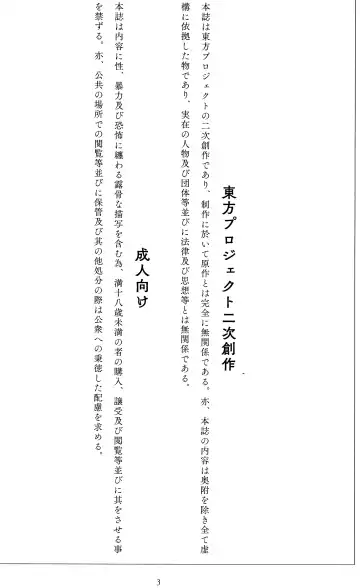 東方プロジェクト二次創作
本誌は東方プロジェクトの二次創作であり、制作に於いて原作とは完全に無関係である。亦、本誌の内容は奥附を除き全て虚
構に依拠した物であり、実在の人物及び団体等並びに法律及び思想等とは無関係である。
成人向け
本誌は内容に性、暴力及び恐怖に纏わる露骨な描写を含む為、満十八歳未満の者の購入、譲受及び閲覧等並びに其をさせる事
を禁ずる。亦、公共の場所での閲覧等並びに保管及び其の他処分の際は公衆への秉徳した配慮を求める。
3